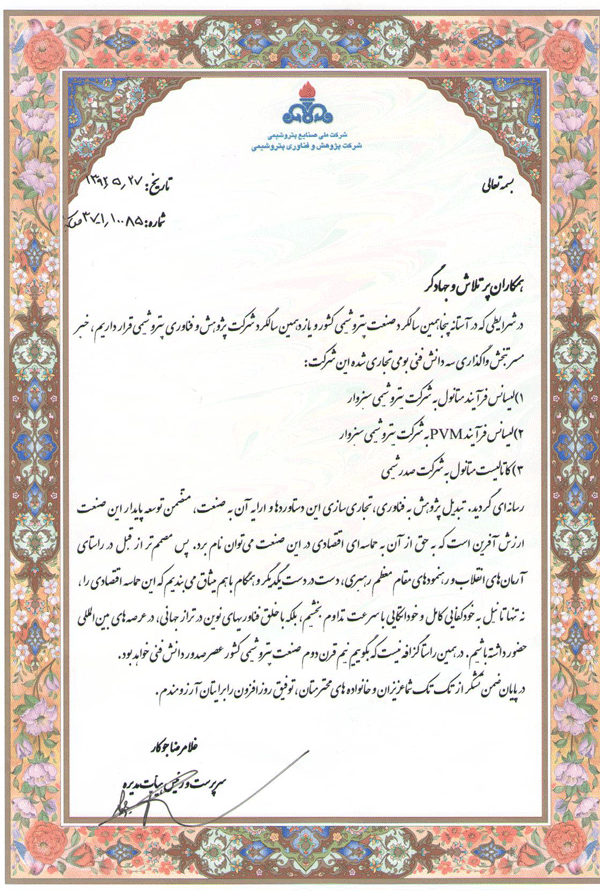 شرکت ملی صنایع پتروشیمی
شرکت پژوهش و فناوری پتروشیمی
بسمه تعالی
تاریخ: ۱۳۹۲،۵،۲۷
شماره: ۳۷۱،۱۰۰۸۵
همکاران پر تلاش و جهادگر
در شرایطی که در آستانه پنجاهمین سالگرد صنعت پتروشیمی کشور و یازدهمین سالگرد شرکت پژوهش و فناوری پتروشیمی قرار داریم، خبر
مسرتبخش واگذاری سه دانش فنی بومی تجاری شده این شرکت:
۱) لیسانس فرآیند متانول به شرکت پتروشیمی سبزوار
۲) لیسانس فرآیند PVM به شرکت پتروشیمی سبزوار
۳) کاتالیست متانول به شرکت صدر شیمی
رسانه ای گردید. تبدیل پژوهش به فناوری، تجاری سازی این دستاوردها و ارایه آن به صنعت، متضمن توسعه پایدار این صنعت
ارزش آفرین است که به حق از آن به حماسه ای اقتصادی در این صنعت می توان نام برد. پس مصمم تر از قبل در راستای
آرمان های انقلاب و رهنمودهای مقام معظم رهبری، دست در دست یکدیگر و همگام با هم میثاق می بندیم که این حماسه اقتصادی را،
نه تنها تا نیل به خودکفایی کامل و خوداتکایی با سرعت تداوم بخشیم، بلکه با خلق فناوریهای نوین در تراز جهانی، در عرصه های بین المللی
حضور داشته باشیم. در همین راستا گزافه نیست که بگوییم نیم قرن دوم صنعت پتروشیمی کشور عصر صدور دانش فنی خواهد بود.
در پایان ضمن تشکر از تک تک شما عزیزان و خانواده های محترمتان، توفیق روز افزون را برایتان آرزومندم.
غلامرضا جوکار
سرپرست و رئیس هیات مدیره